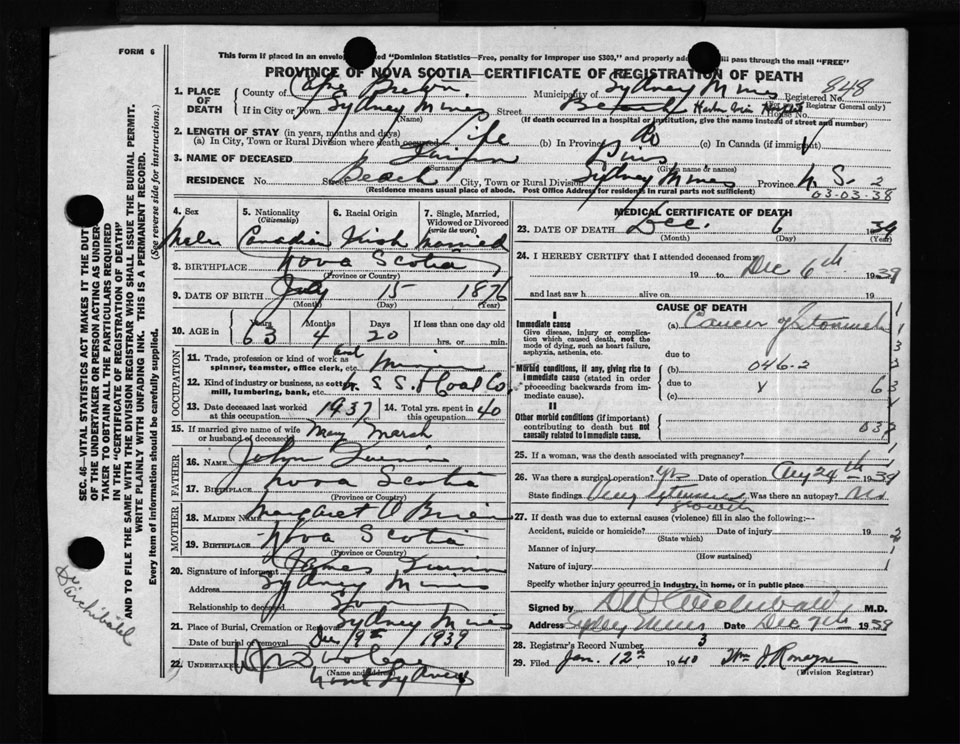 FORM 6
This form if placed in an envelop ed "Dominion Statistics—Free, penalty for improper use $300," and properly add ill pass through the mail "FREE"
PROVINCE OF NOVA SCOTIA—CERTIFICATE OF REGISTRATION OF DEATH
1. PLACE OF DEATH
County of Cape Breton Municipality of Sydney Mines Registered No. 848
(For use of Registrar General only)
If in City or Town Sydney Mines Street Beach House No.
(Name) (If death occurred in a hospital or institution, give the name instead of street and number)
2. LENGTH OF STAY (in years, months and days)
(a) In City, Town or Rural Division where death occurred Life (b) In Province Do (c) In Canada (if immigrant)
3. NAME OF DECEASED
(Surname) (Given name or names)
RESIDENCE No. Street Beach City, Town or Rural Division Sydney Mines Province N.S. 2
(Residence means usual place of abode. Post Office Address for residents in rural parts not sufficient) 03-03-38
4. Sex Male
5. Nationality (Citizenship) Canadian
6. Racial Origin Irish
7. Single, Married, Widowed or Divorced (write the word) Married
8. BIRTHPLACE Nova Scotia
(Province or Country)
9. DATE OF BIRTH July 15 1876
(Month) (Day) (Year)
10. AGE in Years 63 Months 4 Days 20 If less than one day old hrs. or min.
OCCUPATION
11. Trade, profession or kind of work as spinner, teamster, office clerk, etc.
12. Kind of industry or business, as cotton mill, lumbering, bank, etc. N. S. S. & Coal Co.
13. Date deceased last worked at this occupation 1937 14. Total yrs. spent in this occupation 40
15. If married give name of wife or husband of deceased May Marsh
FATHER
16. NAME John
17. Birthplace Nova Scotia
(Province or Country)
MOTHER
18. MAIDEN NAME Margaret O'Brien
19. BIRTHPLACE Nova Scotia
(Province or Country)
20. Signature of informant James
Address Sydney Mines
Relationship to deceased Son
21. Place of Burial, Cremation or Removal Sydney Mines
Date of burial or removal Dec 1939
22. UNDERTAKER
(Name and address) North Sydney
MEDICAL CERTIFICATE OF DEATH
23. DATE OF DEATH Dec. 6 1939
(Month) (Day) (Year)
24. I HEREBY CERTIFY that I attended deceased from
19 to Dec 6th 1939
and last saw h alive on 19
CAUSE OF DEATH
I
Immediate cause
Give disease, injury or complication which caused death, not the mode of dying, such as heart failure, asphyxia, asthenia, etc.
(a) Cancer of Stomach
due to
Morbid conditions, if any, giving rise to immediate cause (stated in order proceeding backwards from immediate cause).
(b) 046-2
due to
(c)
II
Other morbid conditions (if important) contributing to death but not causally related to immediate cause.
25. If a woman, was the death associated with pregnancy?
26. Was there a surgical operation? Yes Date of operation Aug 24th 1939
State findings Was there an autopsy? No
27. If death was due to external causes (violence) fill in also the following:—
Accident, suicide or homicide? Date of injury 19
(State which)
Manner of injury
(How sustained)
Nature of injury
Specify whether injury occurred in industry, in home, or in public place
Signed by Archibald M.D.
Address Sydney Mines Date Dec 7th 1939
28. Registrar's Record Number 3
29. Filed Jan. 12th 1940
(Division Registrar)
SEC. 46—VITAL STATISTICS ACT MAKES IT THE DUTY OF THE UNDERTAKER OR PERSON ACTING AS UNDERTAKER TO OBTAIN ALL THE PARTICULARS REQUIRED IN THE "CERTIFICATE OF REGISTRATION OF DEATH"
AND TO FILE THE SAME WITH THE DIVISION REGISTRAR WHO SHALL ISSUE THE BURIAL PERMIT.
WRITE PLAINLY WITH UNFADING INK. THIS IS A PERMANENT RECORD.
Every item of information should be carefully supplied. (See reverse side for instructions.)
Dr Archibald